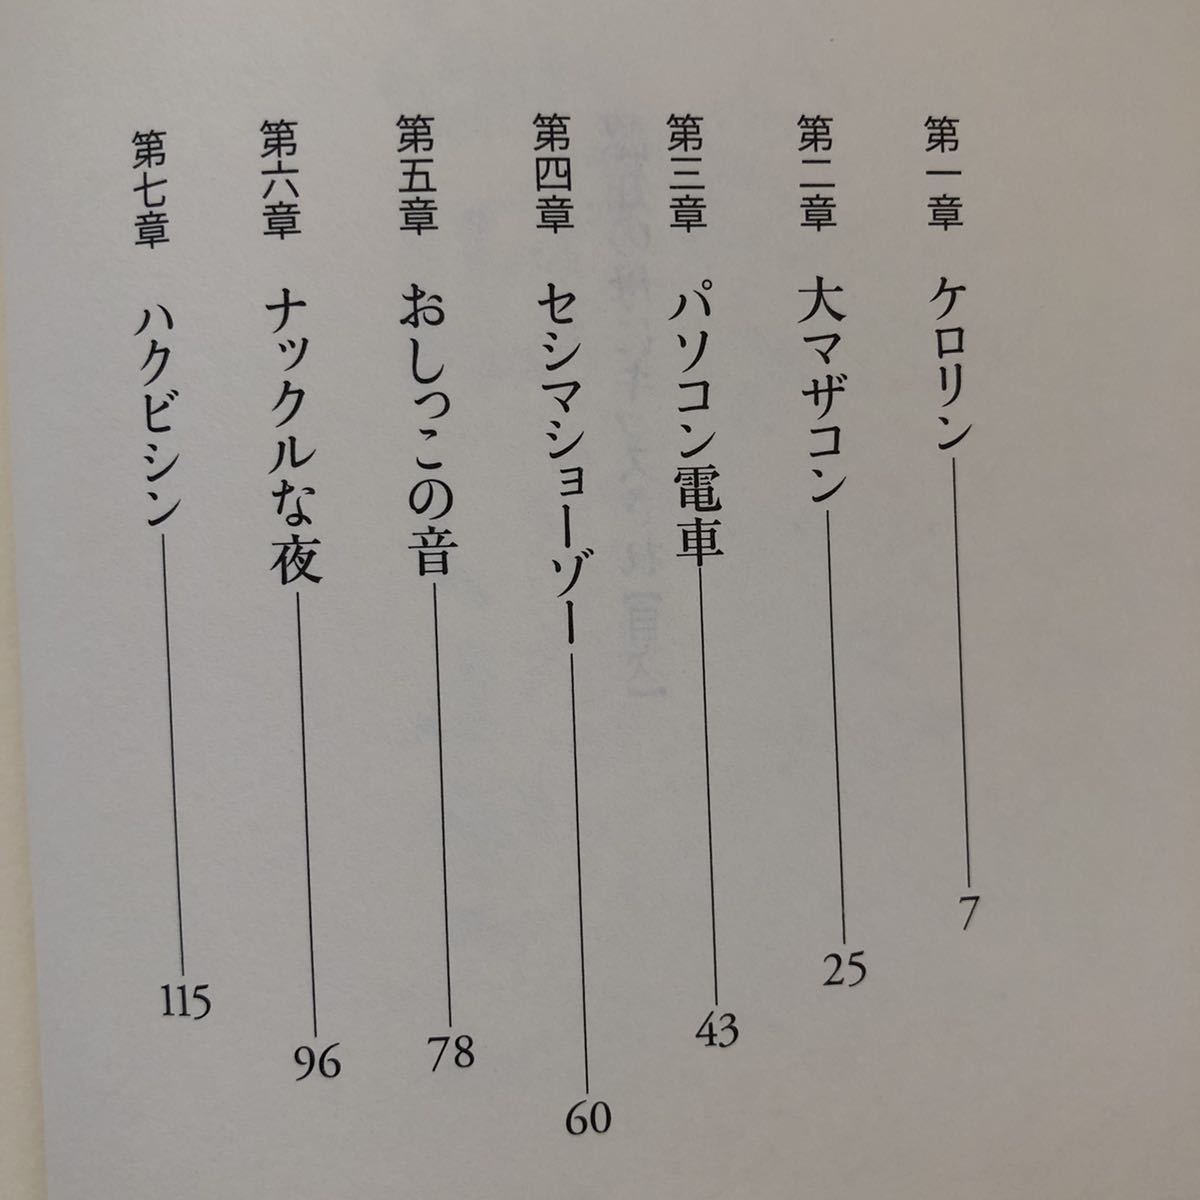 第一章 ケロリン 7
第二章 大マザコン 25
第三章 パソコン電車 43
第四章 セシマショーゾー 60
第五章 おしっこの音 78
第六章 ナックルな夜 96
第七章 ハクビシン 115